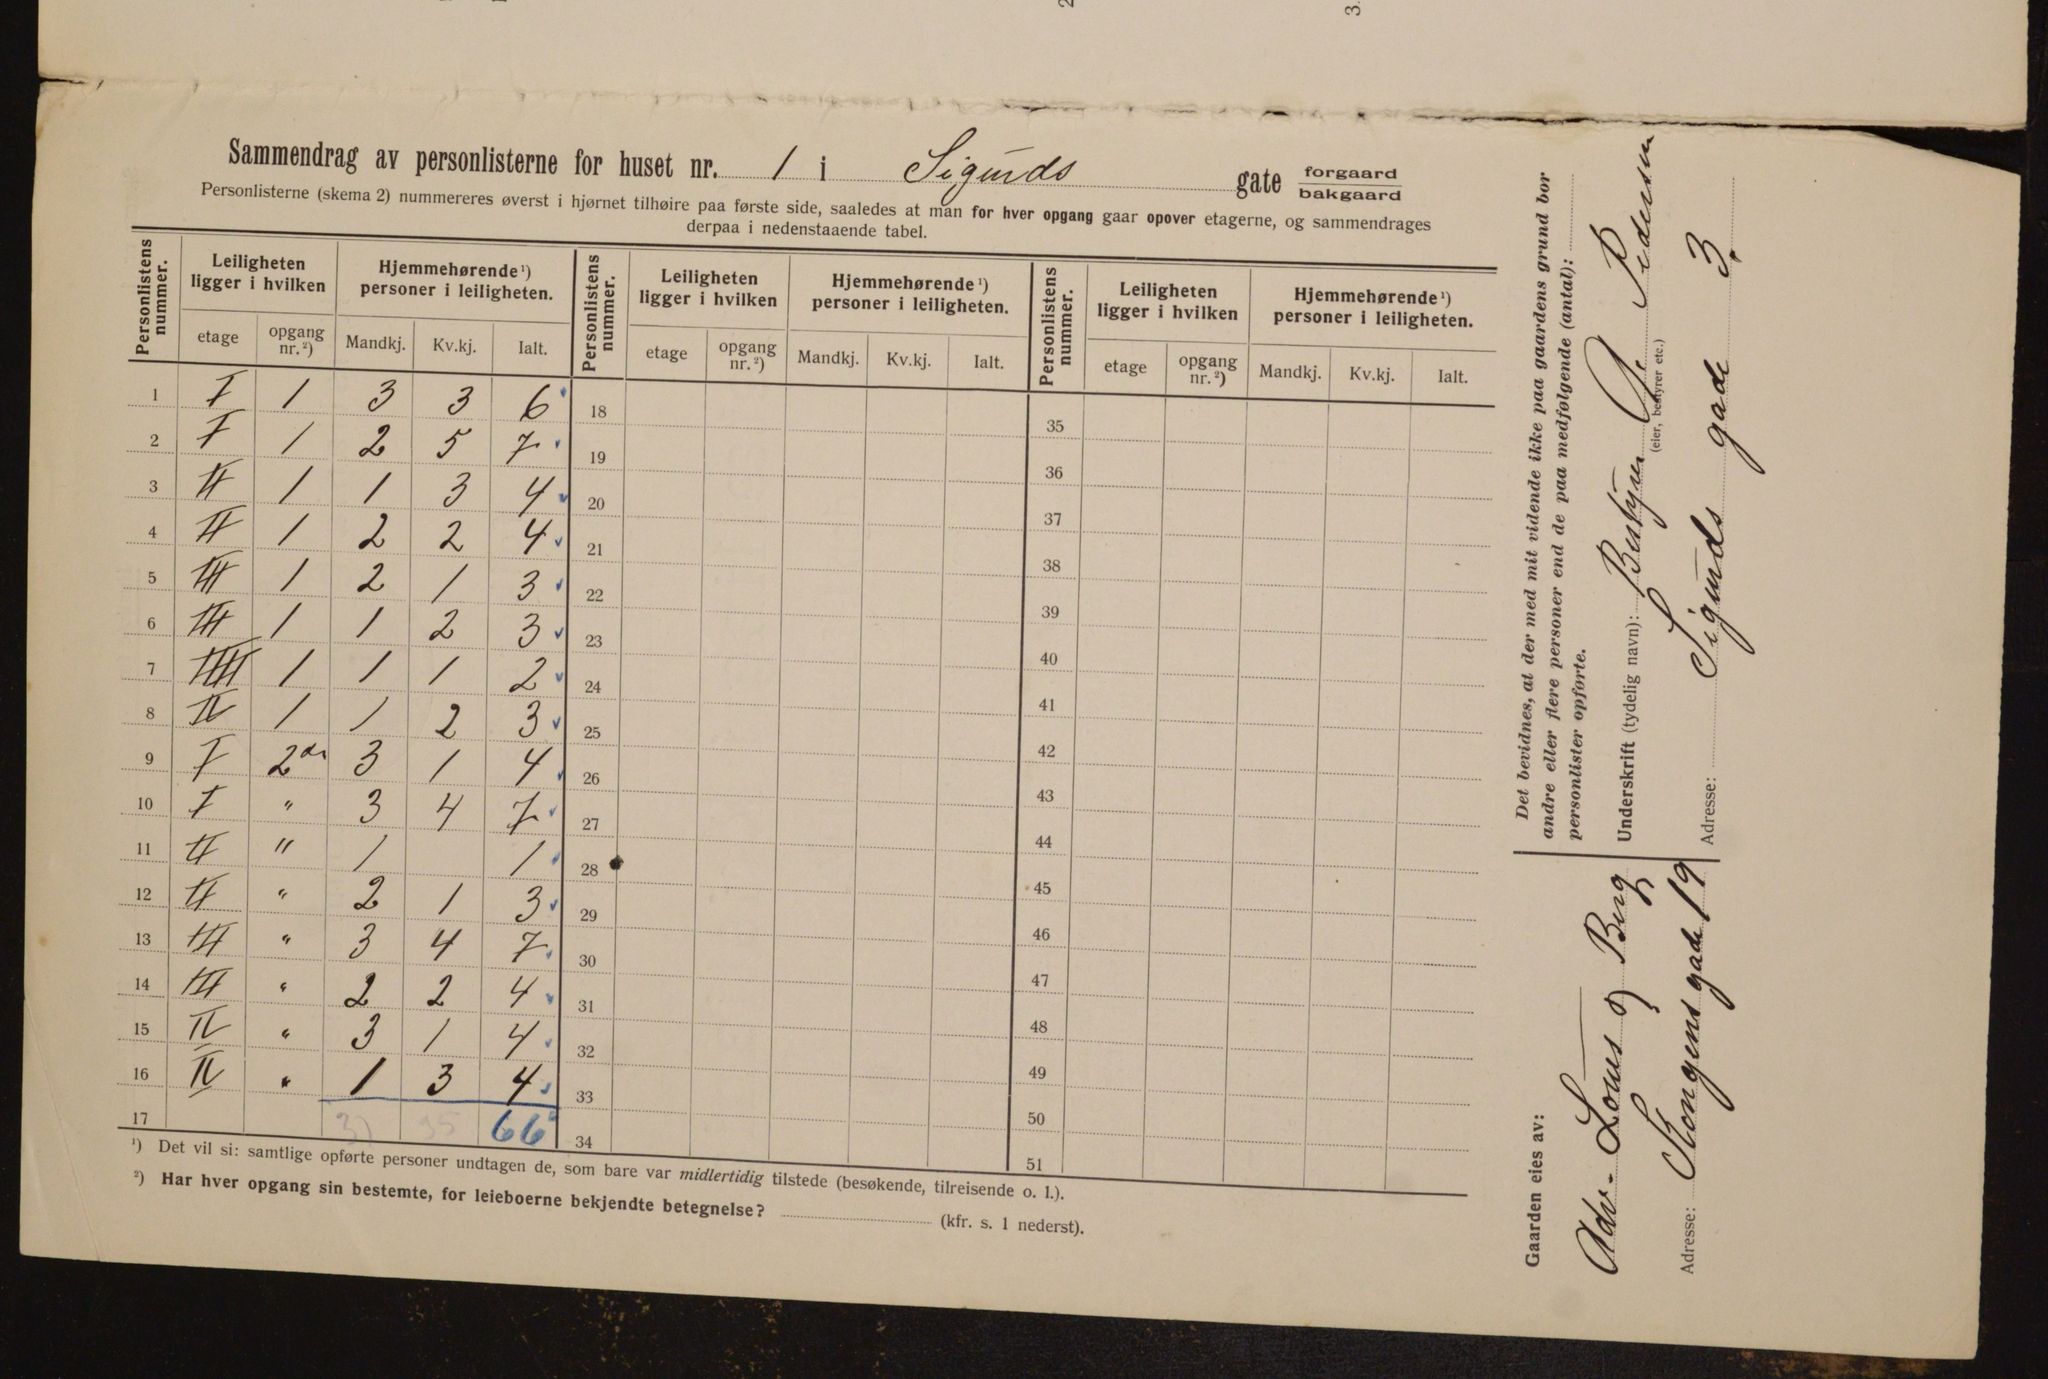 Sammendrag av personlisterne for huset nr. 1 i Sigurds gate forgaard bakgaard
Personlisterne (skema 2) nummereres øverst i hjørnet tilhøire paa første side, saaledes at man for hver opgang gaar opover etagerne, og sammendrages
derpaa i nedenstaaende tabel.
Personlistens nummer. Leiligheten ligger i hvilken Hjemmehørende¹) personer i leiligheten. Personlistens nummer. Leiligheten ligger i hvilken Hjemmehørende¹) personer i leiligheten. Personlistens nummer. Leiligheten ligger i hvilken Hjemmehørende¹) personer i leiligheten.
etage opgang nr.²) Mandkj. Kv.kj. Ialt. etage opgang nr.²) Mandkj. Kv.kj. Ialt. etage opgang nr.²) Mandkj. Kv.kj. Ialt.
1 I 1 3 3 6 18 35
2 I 1 2 5 7 19 36
3 II 1 1 3 4 20 37
4 II 1 2 2 4 21 38
5 III 1 2 1 3 22 39
6 III 1 1 2 3 23 40
7 IIII 1 1 1 2 24 41
8 IV 1 1 2 3 25 42
9 I 2den 3 1 4 26 43
10 I " 3 4 7 27 44
11 II " 1 1 28 45
12 II " 2 1 3 29 46
13 III " 3 4 7 30 47
14 III " 2 2 4 31 48
15 IV " 3 1 4 32 49
16 IV " 1 3 4 33 50
17 31 35 66 34 51
¹) Det vil si: samtlige opførte personer undtagen de, som bare var midlertidig tilstede (besøkende, tilreisende o. l.).
²) Har hver opgang sin bestemte, for leieboerne bekjendte betegnelse? (kfr. s. 1 nederst).
Det bevidnes, at der med mit vidende ikke paa gaardens grund bor
andre eller flere personer end de paa medfølgende (antal):
personlister opførte.
Underskrift (tydelig navn): Bestyrer Pedersen
(eier, bestyrer etc.)
Adresse: Sigurds gade 3.
Gaarden eies av:
Adv. Louis Berg
Adresse: Kongens gade 19